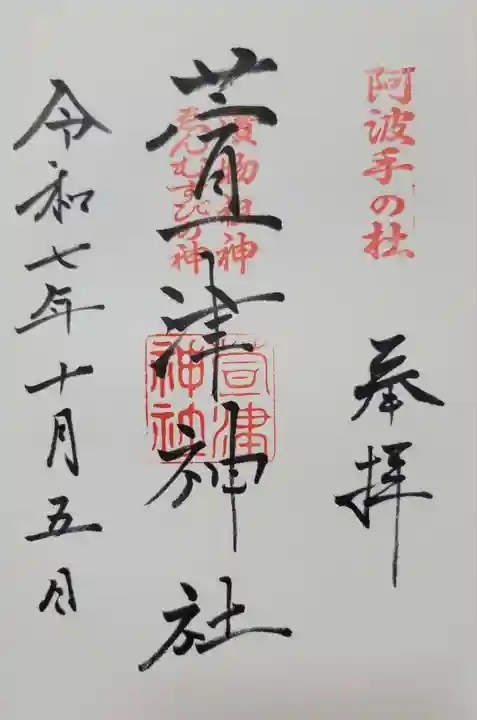 阿波手の杜
奉拝
漬物祖神
ゑんむすびの神
萱津神社
萱津神社
令和七年十月五日